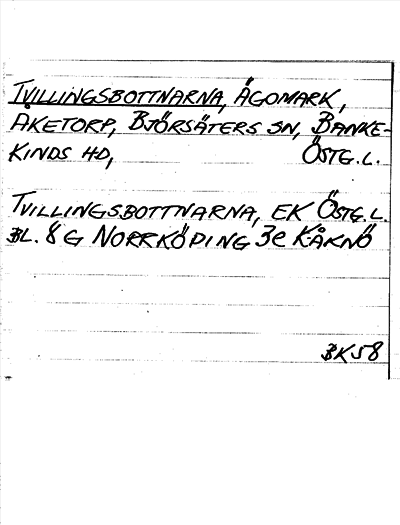 TVILLINGSBOTTNARNA, ÄGOMARK,
ÅKETORP, BJÖRSÄTERS SN, BANKE-
KINDS HD, ÖSTG. L.
TVILLINGSBOTTNARNA, EK ÖSTG. L.
BL. 8 G NORRKÖPING 3e KÅKNÖ
BK58